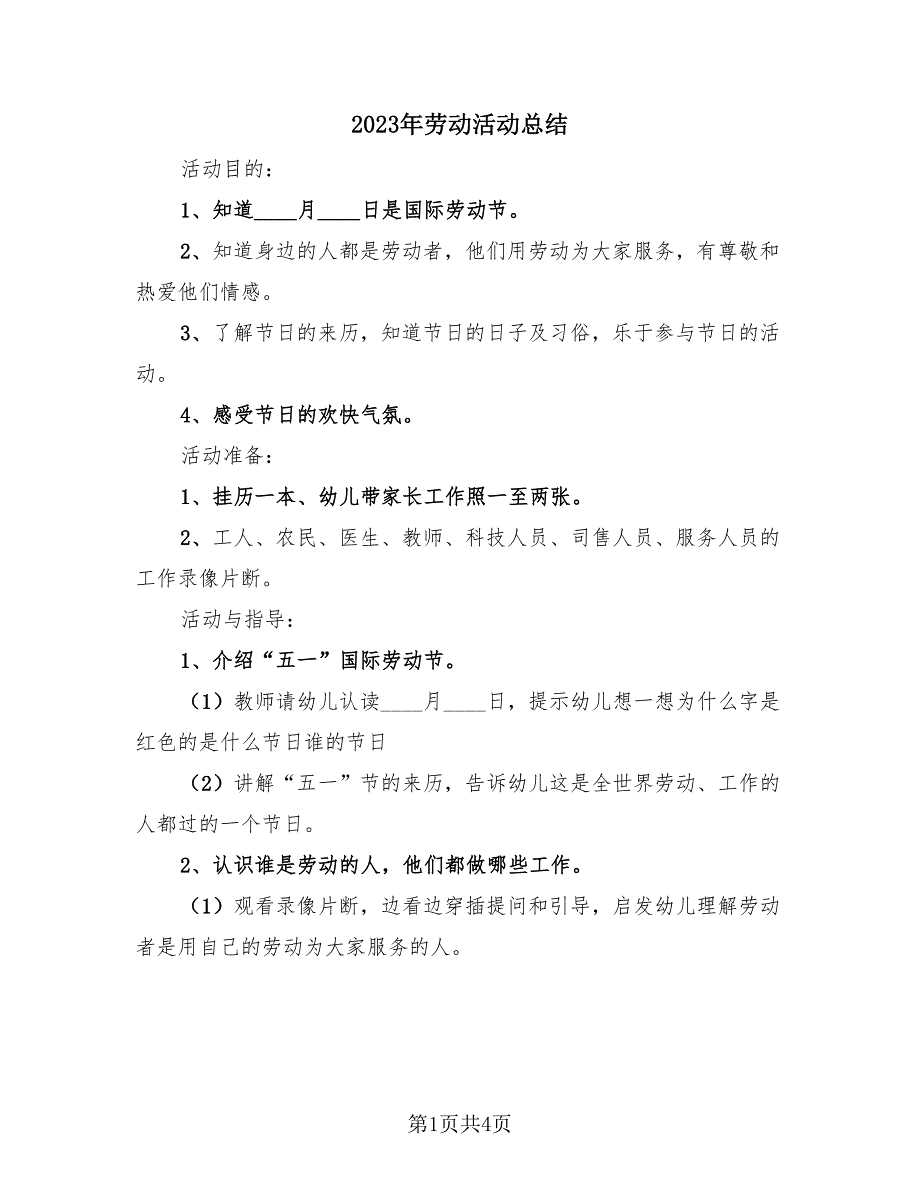 2023年劳动活动总结
活动目的：
1、知道____月____日是国际劳动节。
2、知道身边的人都是劳动者，他们用劳动为大家服务，有尊敬和
热爱他们情感。
3、了解节日的来历，知道节日的日子及习俗，乐于参与节日的活
动。
4、感受节日的欢快气氛。
活动准备：
1、挂历一本、幼儿带家长工作照一至两张。
2、工人、农民、医生、教师、科技人员、司售人员、服务人员的
工作录像片断。
活动与指导：
1、介绍“五一”国际劳动节。
（1）教师请幼儿认读____月____日，提示幼儿想一想为什么字是
红色的是什么节日谁的节日
（2）讲解“五一”节的来历，告诉幼儿这是全世界劳动、工作的
人都过的一个节日。
2、认识谁是劳动的人，他们都做哪些工作。
（1）观看录像片断，边看边穿插提问和引导，启发幼儿理解劳动
者是用自己的劳动为大家服务的人。
第1页共4页